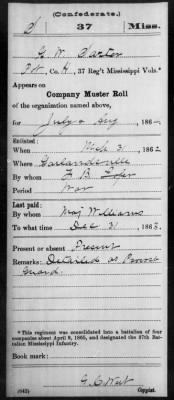 (Confederate.)
S 37 Miss.
G. W. Saxton
Pvt, Co. H, 37 Reg't Mississippi Vols.*
Appears on
Company Muster Roll
of the organization named above,
for July & Aug, 186
Enlisted:
When Mch 31, 1862
Where Garlandville
By whom L B
Period War
Last paid:
By whom Maj Williams
To what time Dec 31, 1863
Present or absent Present
Remarks: Detailed as Provost
Guard.
*This regiment was consolidated into a battalion of four companies about April 9, 1865, and designated the 37th Battalion Mississippi Infantry.
Book mark:
G. C. West
(642) Copyist.